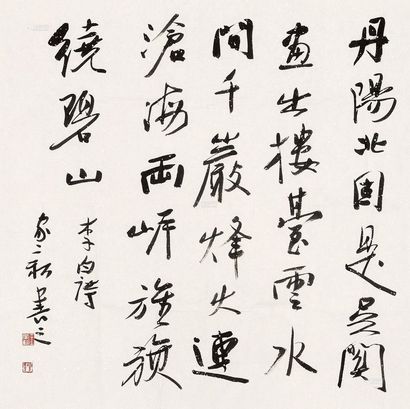 丹陽北固是吳關
畫出樓臺雲水
間千巖烽火連
滄海兩岸旌旗
繞碧山
李白詩
書之